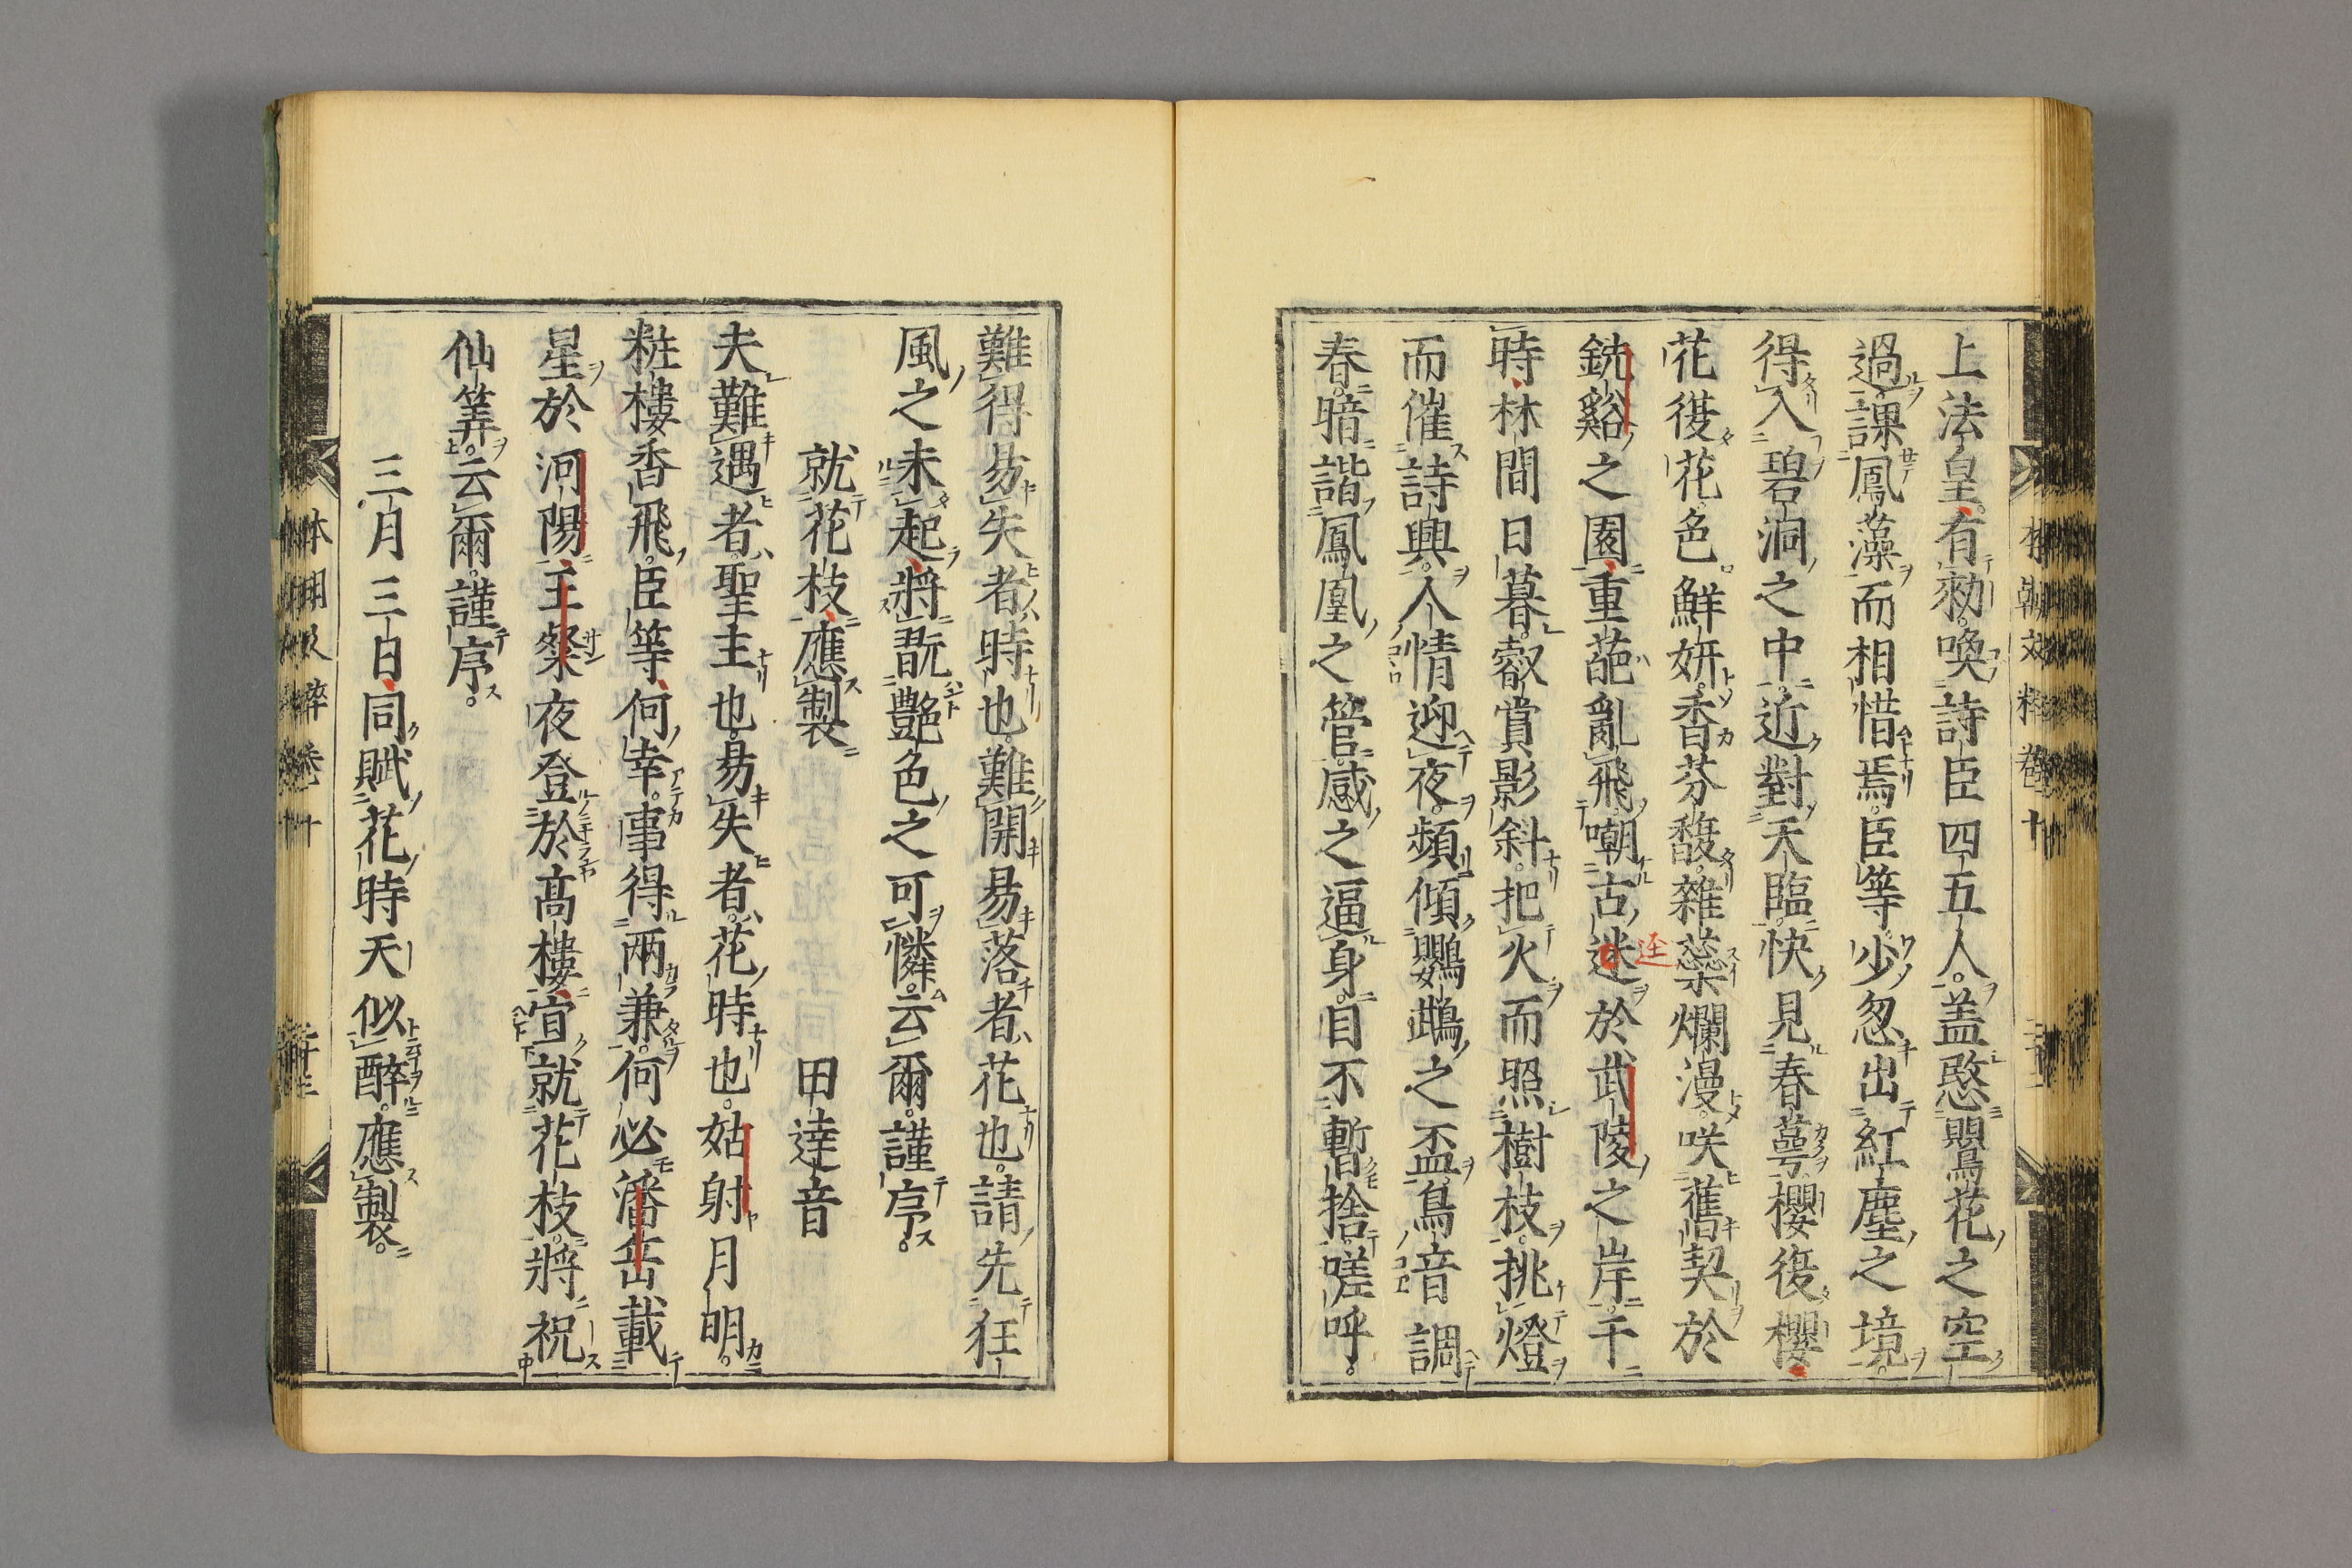 上法皇有勅喚詩臣四五人。盖愍鸎花之空
過課鳳藻而相惜焉。臣等少忽出紅塵之境。
得入碧洞之中近對天臨快見春蕚櫻復櫻
花復花色鮮妍香芬馥雜蘂爛漫咲舊契於
銑谿之園重葩亂飛嘲古迷於武陵之岸于
時林間日暮叡賞影斜把火而照樹枝挑燈
而催詩興人情迎夜頻傾鸚鵡之盃鳥音調
春暗諧鳳凰之管感之逼身目不暫捨嗟呼。
難得易失者時也難開易落者花也請先狂
風之未起將翫艷色之可憐云爾謹序。
就花枝應製 田達音
夫難遇者聖主也易失者花時也。姑射月明。
粧樓香飛臣等何幸事得兩兼何必潘岳載
星於河陽王粲夜登於髙樓宣就花枝將祝
仙筭云爾謹序。
三月三日同賦花時天似醉應製。